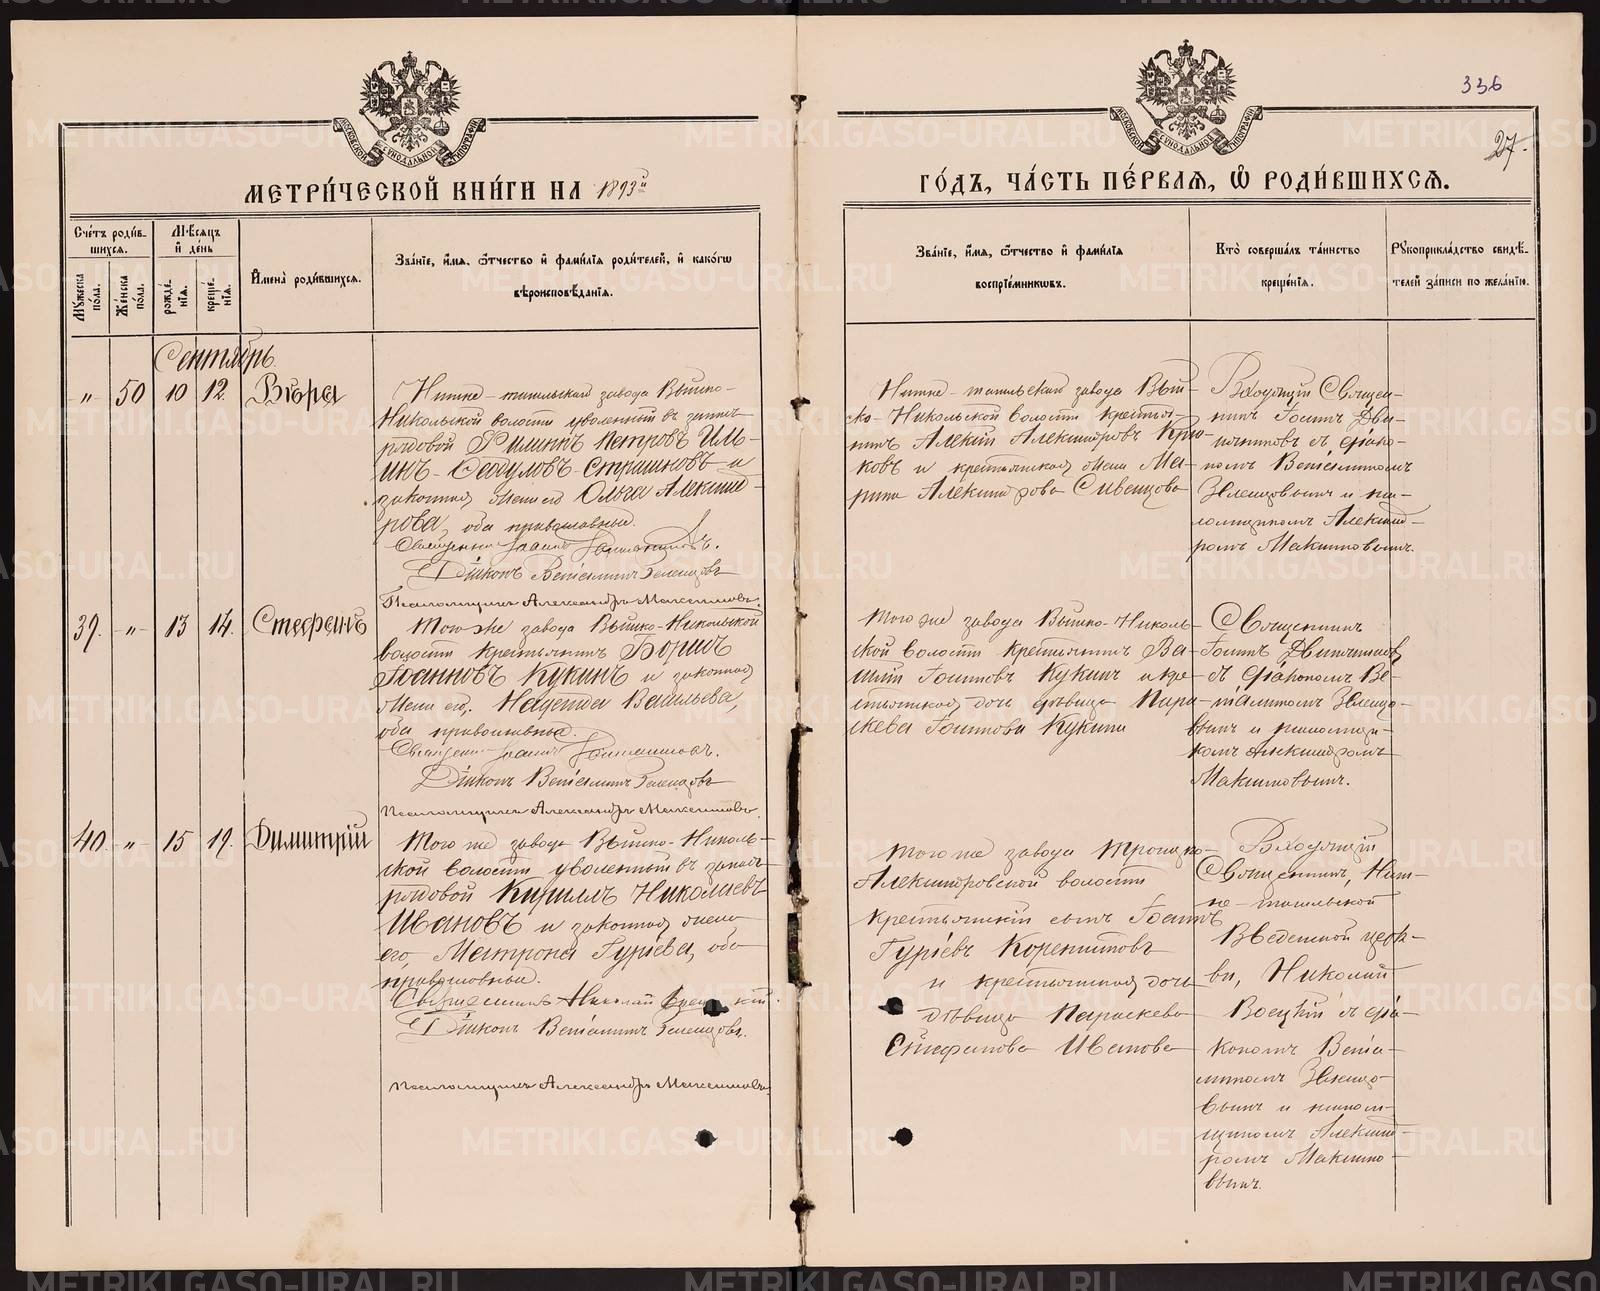 336
27.
МЕТРИ́ЧЕСКОЙ КНИ́ГИ НА 1893й
ГО́ДЪ, ЧА́СТЬ ПЕ́РВАЯ, Ѽ РОДИ́ВШИХСЯ.
Сче́тъ роди́в-
шихся.
Му́жеска по́ла.
Же́нска по́ла.
Мѣ́сяцъ и҆ де́нь
рожде́-
нїя.
креще́-
нїя.
И҆мена̀ роди́вшихся.
Зва́нїе, и҆́мя, ѻ҆́тчество и҆ фами́лїя роди́телей, и҆ како́гѡ
вѣроисповѣ́данїя.
Зва́нїе, и҆́мя, ѻ҆́тчество и҆ фами́лїя
воспрїе́мникѡвъ.
Кто̀ соверша́лъ та́инство
креще́нїя.
Рꙋкоприкла́дство свидѣ́-
телей за́писи по жела́нїю.
Сентябрь.
" 50 10 12. Вѣра
Нижне-тагильскаго завода Выйско-
Никольской волости уволенный въ запасъ
рядовой Филиппъ Петровъ Иль-
инъ-
и
законная жена его Ольга Александ-
рова, оба православные.
Священникъ Іоаннъ
Діаконъ Веніаминъ
Псаломщикъ Александръ Максимовъ.
Нижне-тагильскаго завода Вый-
ско-Никольской волости крестья-
нинъ Алексѣй Александровъ Крю-
ковъ и крестьянская жена Ма-
рина Александрова Сивенцова
Священ-
никъ Іоаннъ
съ діако-
номъ Веніаминомъ
и пса-
ломщикомъ Александ-
ромъ Максимовымъ.
39. " 13 14. Стефанъ
Того же завода Выйско-Никольской
волости крестьянинъ Борисъ
Іоанновъ Кукинъ и законная
жена его, Надежда Васильева,
оба православные.
Священникъ Іоаннъ
Діаконъ Веніаминъ
Псаломщикъ Александръ Максимовъ.
Того же завода Выйско-Николь-
ской волости крестьянинъ Ва-
силій Іоанновъ Кукинъ и кре-
стьянская дочь дѣвица Пара-
скева Іоаннова Кукина
Священникъ
Іоаннъ
съ діакономъ Ве-
ніаминомъ
и псаломщи-
комъ Александромъ
Максимовымъ.
40. " 15 19. Димитрій
Того же завода Выйско-Николь-
ской волости уволенный въ запасъ
рядовой Кириллъ Николаевъ
Ивановъ и законная жена
его, Матрона Гуріева, оба
православные.
Священникъ Николай
Діаконъ Веніаминъ
Псаломщикъ Александръ Максимовъ.
Того же завода Троицко-
Александровской волости
крестьянскій сынъ Іоаннъ
Гуріевъ
и крестьянская дочь
дѣвица Параскева
Стефанова Иванова
Священникъ, Ниж-
не-тагильской
Введенской церк-
ви, Николай
съ діа-
кономъ Веніа-
миномъ
и псалом-
щикомъ Александ-
ромъ Максимо-
вымъ.